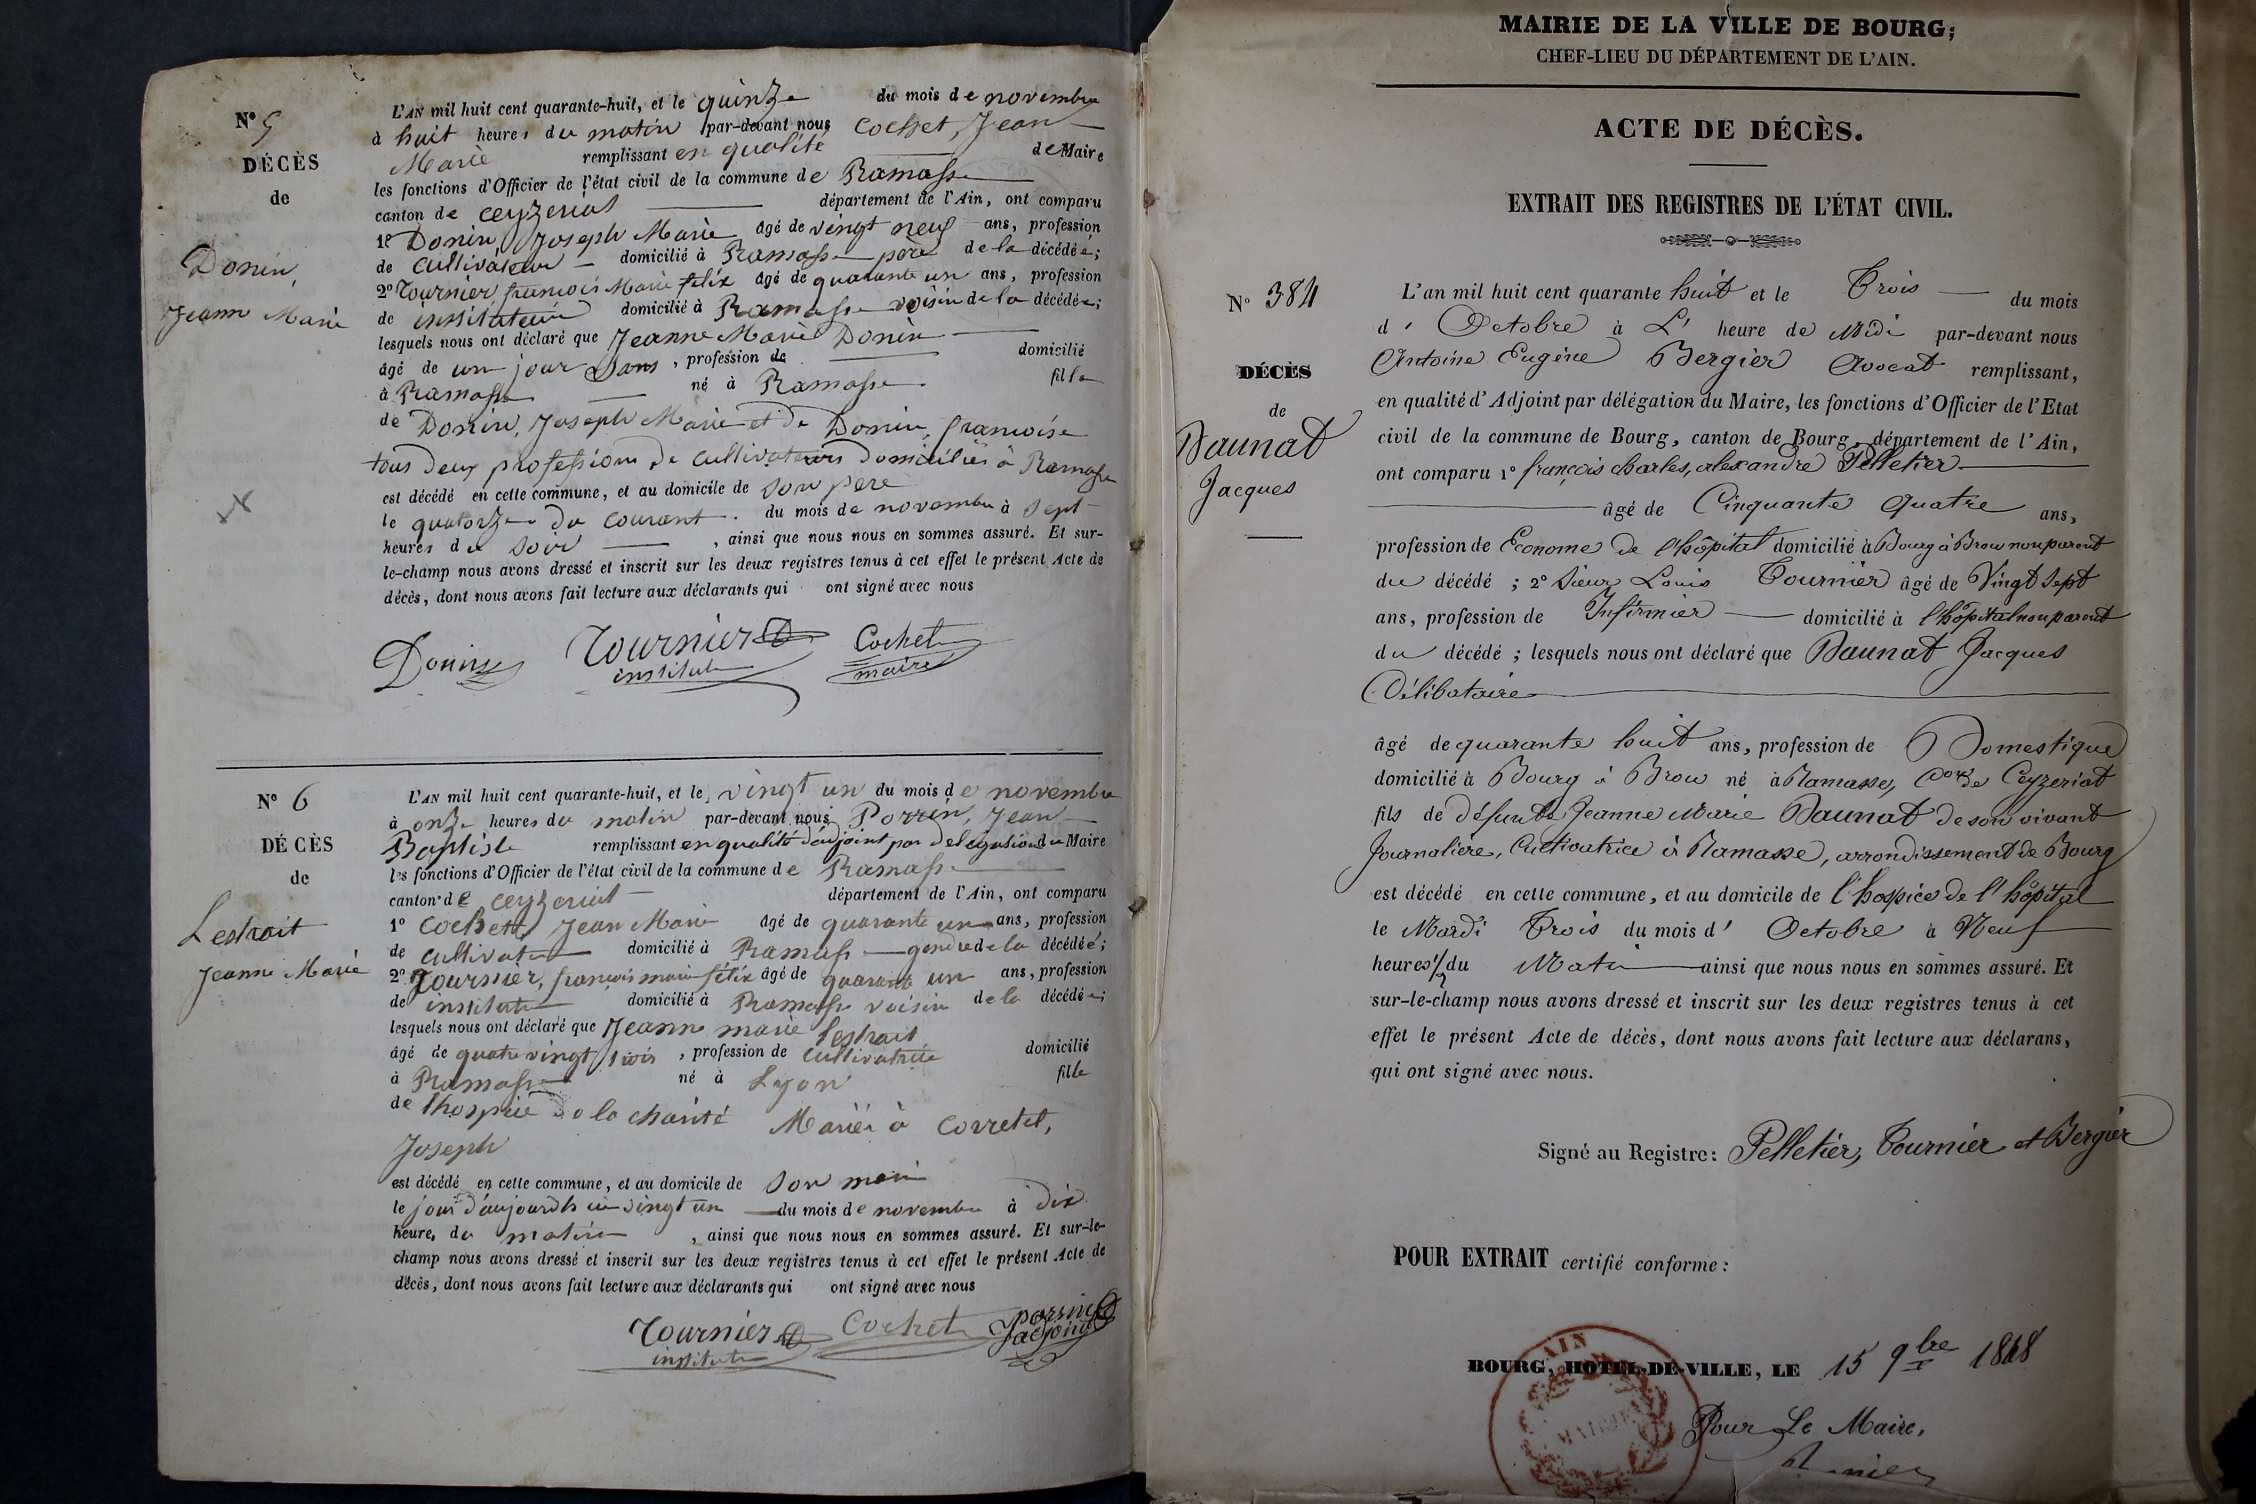 N° 5
DÉCÈS
de
Donin,
Jeanne Marie
L'AN mil huit cent quarante-huit, et le quinze du mois de novembre
à huit heures du matin par-devant nous Cochet, Jean
Marie remplissant en qualité de Maire
les fonctions d'Officier de l'état civil de la commune de Ramasse
canton de ceyzeriat département de l'Ain, ont comparu
1° Donin, Joseph Marie âgé de vingt neuf ans, profession
de cultivateur domicilié à Ramasse père de la décédée;
2° Tournier, françois Marie félix âgé de quarante un ans, profession
de instituteur domicilié à Ramasse voisin de la décédée;
lesquels nous ont déclaré que Jeanne Marie Donin
âgé de un jour sans, profession de domicilié
à Ramasse né à Ramasse. fille
de Donin, Joseph Marie et de Donin, françoise
tous deux profession de cultivateurs domiciliés à Ramasse
est décédé en cette commune, et au domicile de son père
le quatorze du courant. du mois de novembre à sept
heures du soir, ainsi que nous nous en sommes assuré. Et sur-
le-champ nous avons dressé et inscrit sur les deux registres tenus à cet effet le présent Acte de
décès, dont nous avons fait lecture aux déclarants qui ont signé avec nous
Donin Tournier Cochet
institut maire
N° 6
DÉCÈS
de
Lestrait
Jeanne Marie
L'AN mil huit cent quarante-huit, et le vingt un du mois de novembre
à onze heures du matin par-devant nous Porrin, Jean
Baptiste remplissant en qualité d'adjoint par délégation du Maire
les fonctions d'Officier de l'état civil de la commune de Ramasse
canton de ceyzeriat département de l'Ain, ont comparu
1° Cochet, Jean Marie âgé de quarante un ans, profession
de cultivateur domicilié à Ramasse gendre de la décédée;
2° Tournier, françois marie félix âgé de quarante un ans, profession
de instituteur domicilié à Ramasse voisin de la décédée;
lesquels nous ont déclaré que Jeanne marie Lestrait
âgé de quatre vingt trois, profession de cultivatrice domicilié
à Ramasse né à Lyon fille
de l'hospice de la charité Mariée à Corretet,
Joseph
est décédé en cette commune, et au domicile de son mari
le jour d'aujourd'hui vingt un du mois de novembre à dix
heures du matin, ainsi que nous nous en sommes assuré. Et sur-le-
champ nous avons dressé et inscrit sur les deux registres tenus à cet effet le présent Acte de
décès, dont nous avons fait lecture aux déclarants qui ont signé avec nous
Tournier Cochet porrin
institut adjoint
MAIRIE DE LA VILLE DE BOURG;
CHEF-LIEU DU DÉPARTEMENT DE L'AIN.
ACTE DE DÉCÈS.
EXTRAIT DES REGISTRES DE L'ÉTAT CIVIL.
N° 384
DÉCÈS
de
Daunat
Jacques
L'an mil huit cent quarante huit et le Trois du mois
d' Octobre à L' heure de Midi par-devant nous
Antoine Eugène Bergier Avocat remplissant,
en qualité d'Adjoint par délégation du Maire, les fonctions d'Officier de l'Etat
civil de la commune de Bourg, canton de Bourg, département de l'Ain,
ont comparu 1° françois charles, alexandre Pelletier
âgé de Cinquante Quatre ans,
profession de Econome de l'hôpital domicilié à Bourg à Brou non parent
du décédé ; 2° Sieur Louis Tournier âgé de Vingt Sept
ans, profession de Infirmier domicilié à l'hôpital non parent
du décédé ; lesquels nous ont déclaré que Daunat Jacques
Célibataire
âgé de quarante huit ans, profession de Domestique
domicilié à Bourg à Brou né à Ramasse, Con de Ceyzeriat
fils de défunte Jeanne Marie Daunat de son vivant
Journalière, Cultivatrice à Ramasse, arrondissement de Bourg
est décédé en cette commune, et au domicile de l'hospice de l'hôpital
le Mardi Trois du mois d' Octobre à Neuf
heures 1/2 du Matin ainsi que nous nous en sommes assuré. Et
sur-le-champ nous avons dressé et inscrit sur les deux registres tenus à cet
effet le présent Acte de décès, dont nous avons fait lecture aux déclarans,
qui ont signé avec nous.
Signé au Registre: Pelletier, Tournier et Bergier
POUR EXTRAIT certifié conforme :
BOURG, HOTEL-DE-VILLE, LE 15 9bre 1848
AIN
MAIRIE
Pour Le Maire,